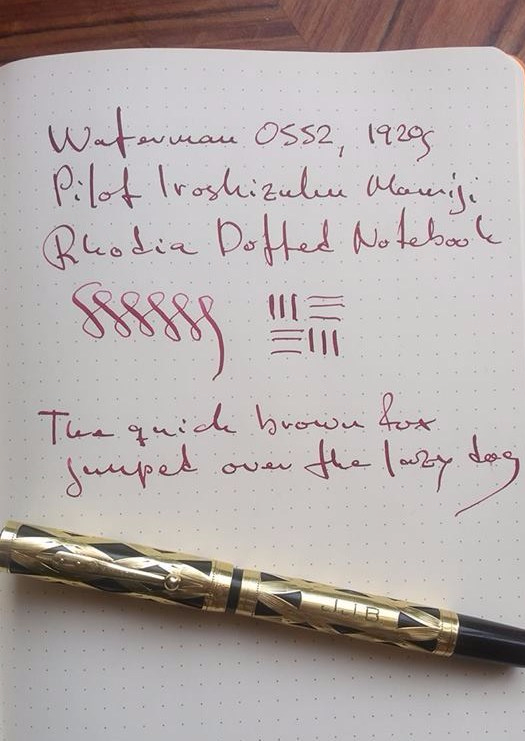 Waterman 0552, 1920s
Pilot Iroshizuku Momiji
Rhodia Dotted Notebook
The quick brown fox
jumped over the lazy dog
J.J.B